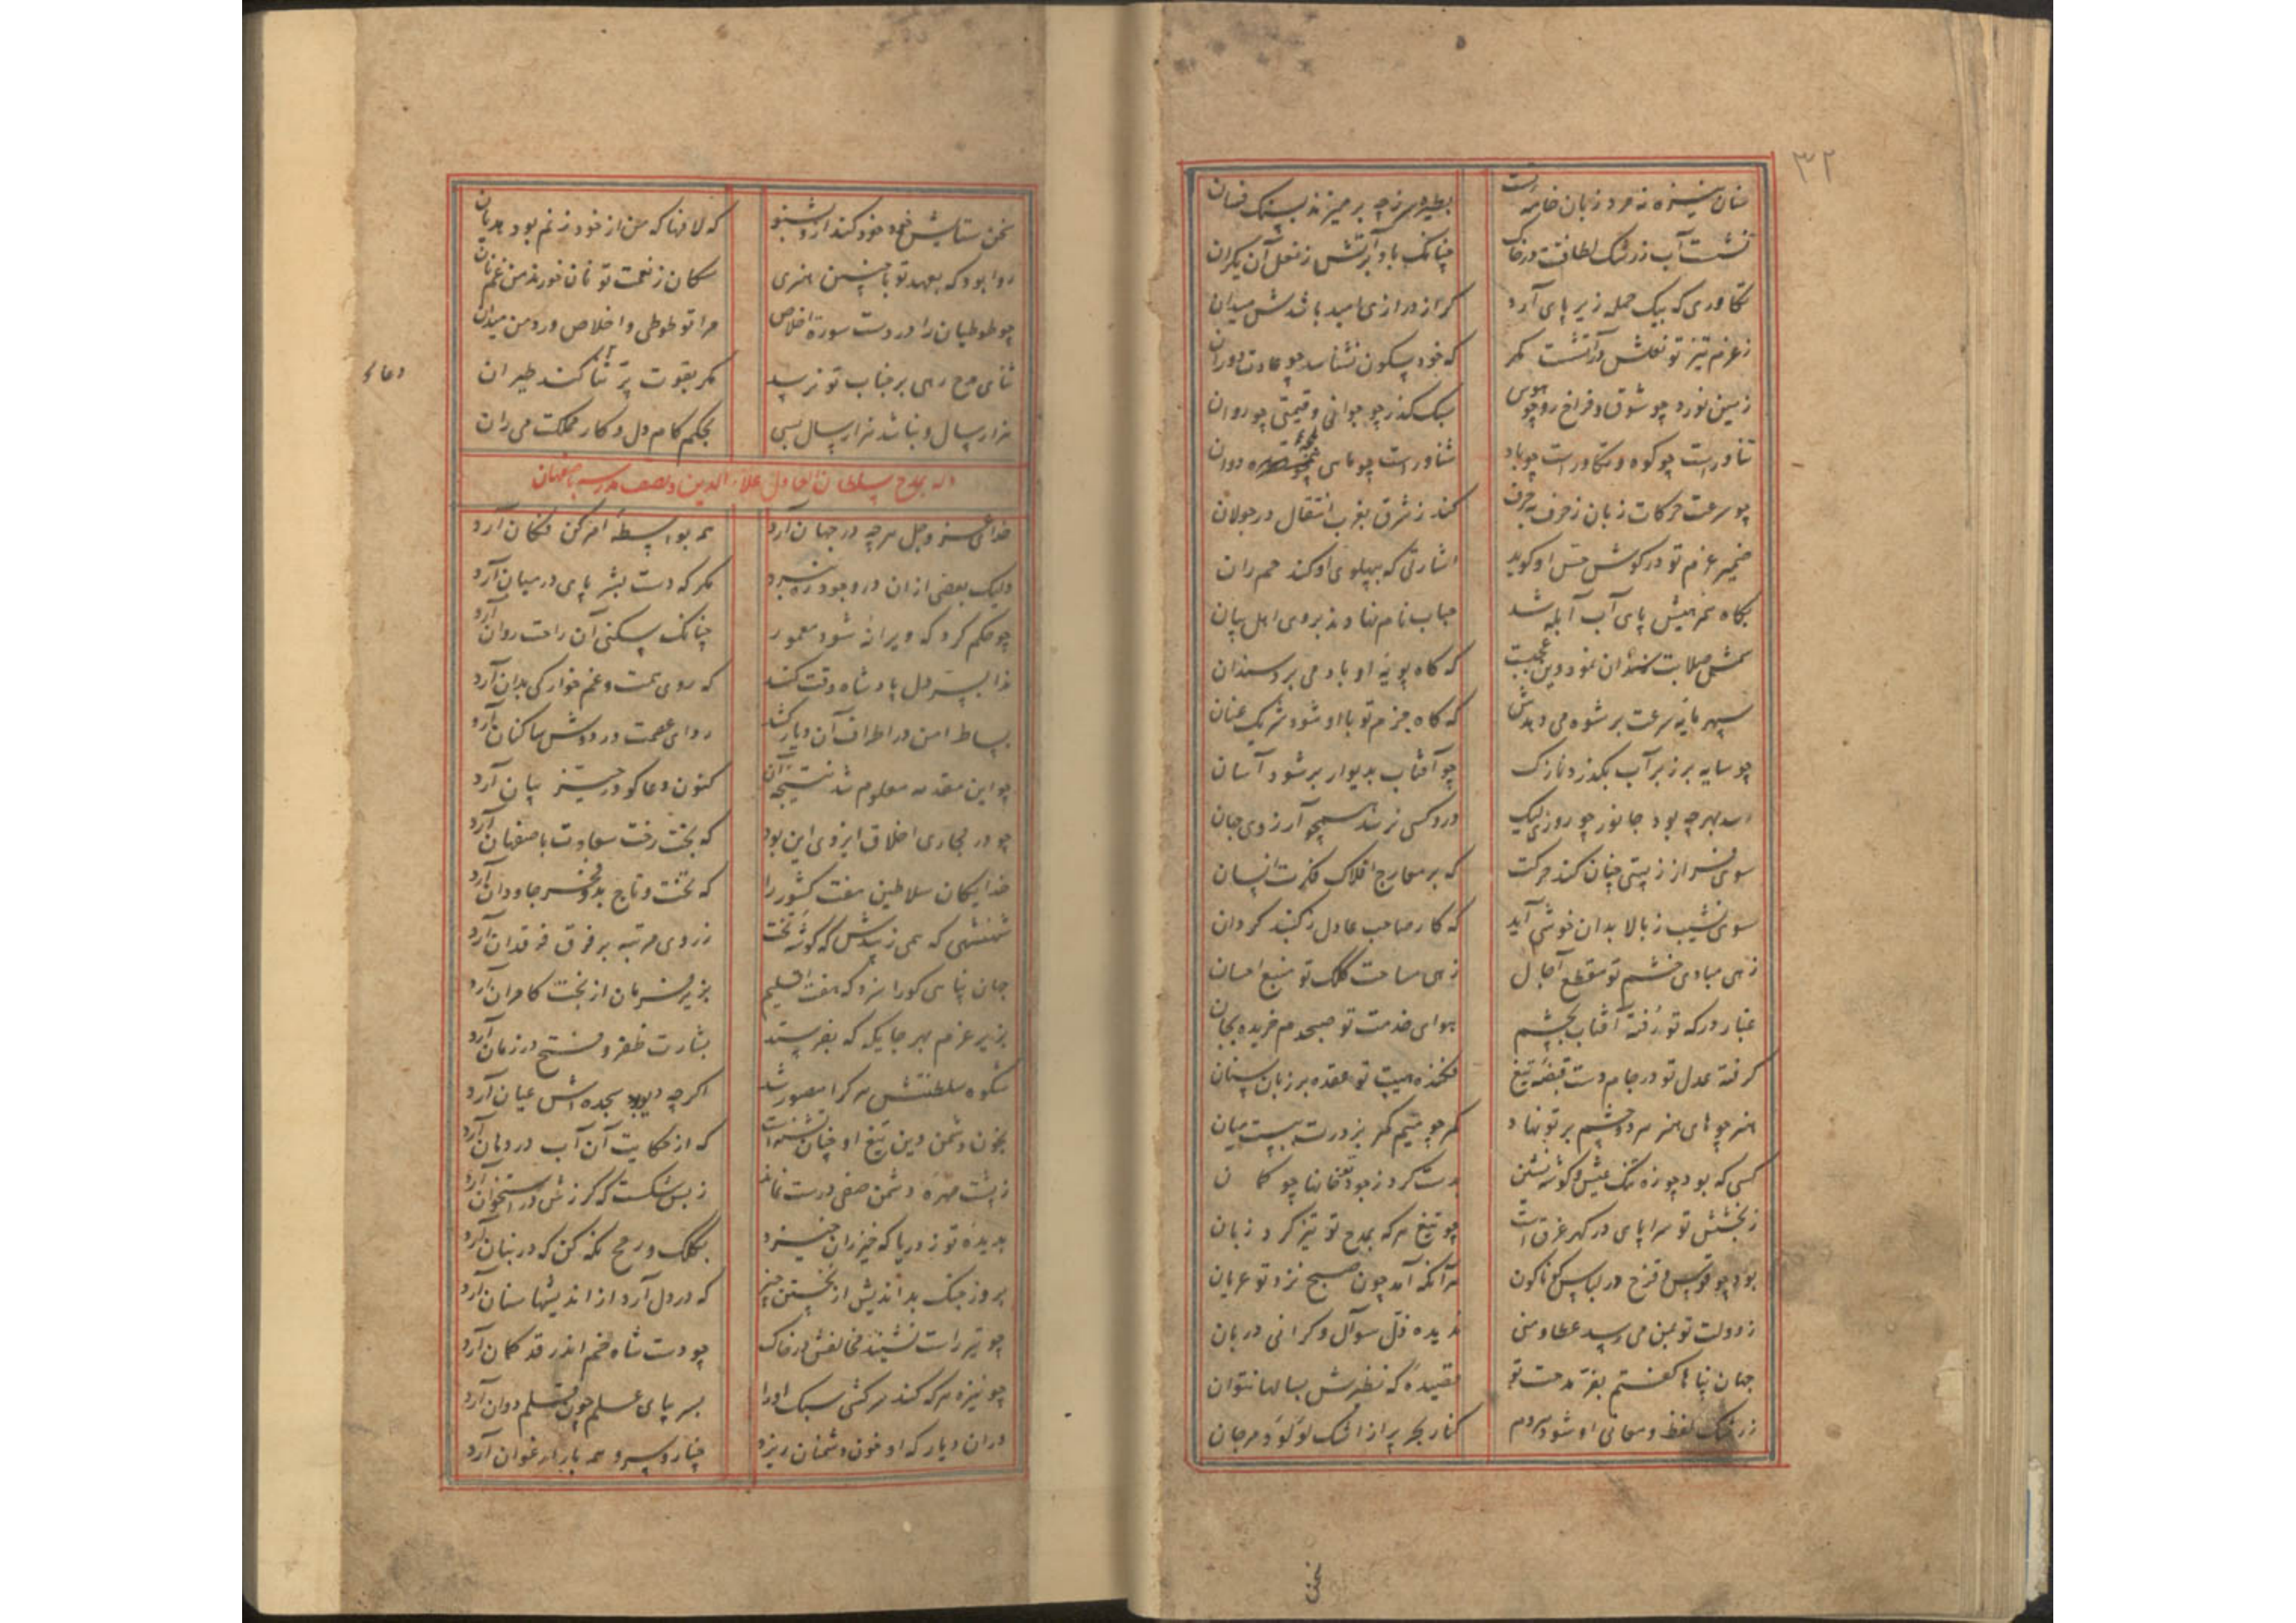 ۳۲
سنان نیزه نه مرد زبان خامه تست
نشست آب ز رشک لطافتت در خاک چنانک باد بر آتش ز نعل آن یکران
تکاوری که بیک حمله زیر پای آرد کر از درازی امید باشدش میدان
ز عزم تیز تو نعلش در آتشست مکر که خود سکون نشناسد چو عادت دوران
زمین نورد چو شوق و فراخ رو چو هوس سبک گذر چو جوانی و قیمتی چو روان
تناورست چو کوه و تکاورست چو باد شناورست چو ماهی دوان
چو سرعت حرکات زبان ز حرف بحرف کند ز شرق بغرب انتقال در جولان
ضمیر عزم تو در کوش حس او کوید اشارتی که بپهلوی او کند هم ران
بگاه پای آب آبله شد حباب نام نهادند بروی اهل بیان
سمش صلابت سندان نمود وین عجبست که گاه پویه او باد می برد سندان
سپهر مایه سرعت برشوه می دهدش که گاه جزم تو با او شود شریک عنان
چو سایه بر زبر آب بگذرد نازک چو آفتاب بدیوار برشود آسان
رسد بهر چه بود جانور چو روزی لیک درو کسی نرسد همچو آرزوی جهان
سوی فراز ز پستی چنان کند حرکت که بر معارج افلاک فکرت انسان
سوی نشیب ز بالا بدان خوشی آید که کار صاحب عادل ز گنبد گردان
زهی مبادی خشم تو مقطع آجال زهی مساحت کلک تو منبع احسان
غبار درگه تو رفته آفتاب بچشم هوای خدمت تو صبحدم خریده بجان
گرفته عدل تو در جام دست قبضه تیغ فکنده هیبت تو عقده بر زبان سنان
هنر چو های هنر هر دو چشم بر تو نهاد کمر چو میم کمر بر درت ببست میان
کسی که بود چو زه تنگ عیش و گوشه نشین بدست کرد ز جودت خانها چو کمان
ز بخشش تو سراپای در گهر غرق است چو تیغ هر که بمدح تو تیز کرد زبان
بود چو قوس قزح در لباس گوناگون هر آنکه آمد چون صبح نزد تو عریان
ز دولت تو بمن می رسید عطا و منی ندیده ذل سؤال و گرانی دربان
جهان پناها گفتم بفر مدحت تو قصیده که نظیرش بسالها نتوان
ز رشک لفظ و معانی او شود هر دم کنار بحر پر از اشک لؤلؤ و مرجان
سخن
سخن ستایش خود خود کند ازو بشنو که لافها که من از خود زنم بود هذیان
روا بود که بعهد تو با چنین هنری سکان ز نعمت تو نان خورند من غم نان
چو طوطیان را وردست سوره اخلاص مرا تو طوطی و اخلاص ورد من میدان
ثنای مدح رهی بر جناب تو نرسد مکر بقوت پر ثنا کند طیران
هزار سال و نباشد هزار سال بسی بحکم کام دل و کار مملکت می ران
وله بمدح سلطان العادل علاء الدین و یصف مدرسه باصفهان
خدای عز و جل هر چه در جهان آرد همه بواسطه امر کن فکان آرد
ولیک بعضی از ان در وجود ره نبرد مکر که دست بشر پای در میان آرد
چو حکم کرد که ویرانه شود معمور چنانک سکنی آن راحت روان آرد
در دل پادشاه وقت کند که روی همت و غم خوارگی بدان آرد
بساط امن در اطراف آن دیار کشد ردای عصمت در دوش ساکنان آرد
چو این مقدمه معلوم شد نتیجه آن کنون دعاگو در حیز بیان آرد
چو در مجاری اخلاق ایزدی این بود که بخت رخت سعادت باصفهان آرد
خدایگان سلاطین هفت کشور را که تخت و تاج بدو فخر جاودان آرد
شهنشهی که همی زیبدش که گوشه تخت ز روی مرتبه بر فرق فرقدان آرد
جهان پناهی کو را سزد که هفت اقلیم بزیر فرمان از بخت کامران آرد
بزیر عزم بهر جایگه که بفرستد بشارت ظفر و فتح در زمان آرد
شکوه سلطنتش هر کرا مصور شد اگر چه دیو بود سجده اش عیان آرد
بخون دشمن دین تیغ او چنان تشنه است که از حکایت آن آب در دهان آرد
ز پشت مهره دشمن صفی درست نماند ز بس شکست که گرزش در استخوان آرد
بدیده تو ز دریا که خیزران خیزد بکلک و رمح نگه کن که در بنان آرد
بروز جنگ بداندیش از نخستین چیز که در دل آرد از اندیشها سنان آرد
چو تیر راست نشیند مخالفش در خاک چو دست شاه خم اندر قد کمان آرد
چو نیزه هر که کند سرکشی سبک او را بسر بپای علم چون قلم دوان آرد
در ان دیار که او خون دشمنان ریزد چنار و سرو همه بار ارغوان آرد